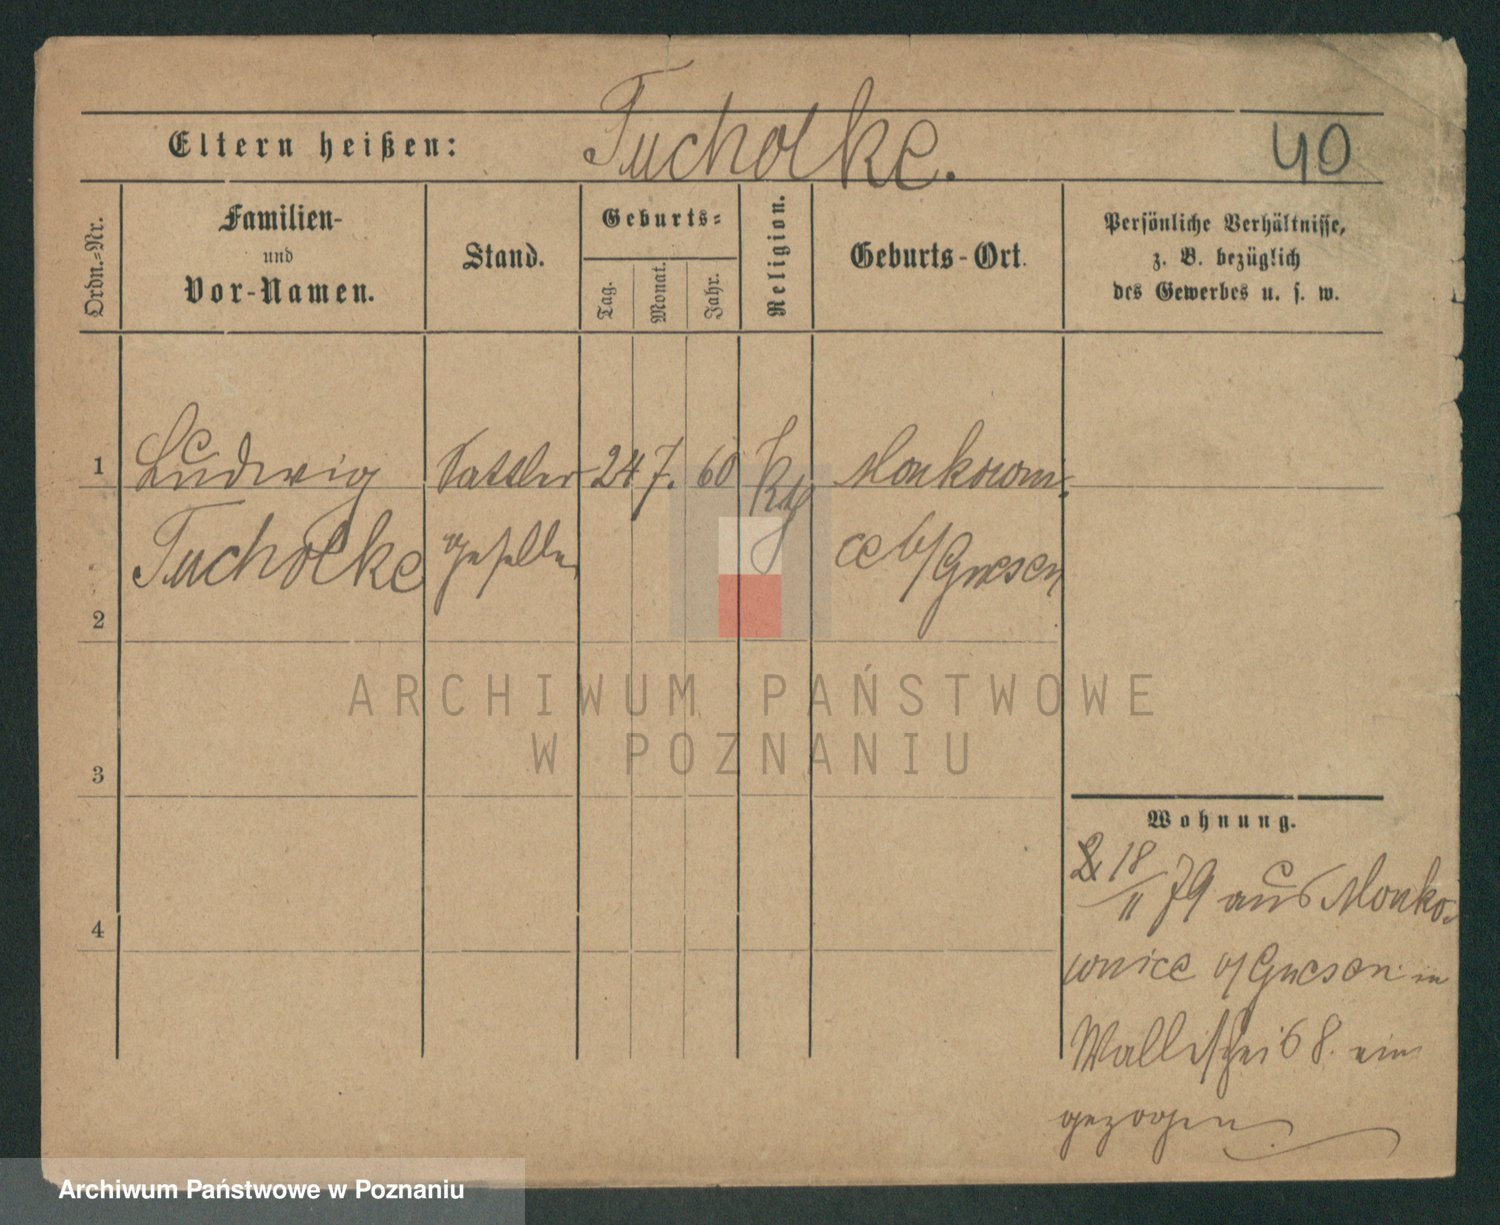 Eltern heißen: Tucholke. 40
Ordn.-Nr.
Familien-
und
Vor-Namen.
Stand.
Geburts-
Tag.
Monat.
Jahr.
Religion.
Geburts-Ort.
Persönliche Verhältnisse,
z. B. bezüglich
des Gewerbes u. s. w.
1 Ludwig Sattler 24 7. 60 Monkowni-
Tucholke geselle ce b/ Gnesen
2
3
4
Wohnung.
18/11 79 aus Monko-
wnice b/ Gnesen in
Wallischei 68. ein
gezogen
ARCHIWUM PAŃSTWOWE
W POZNANIU
Archiwum Państwowe w Poznaniu